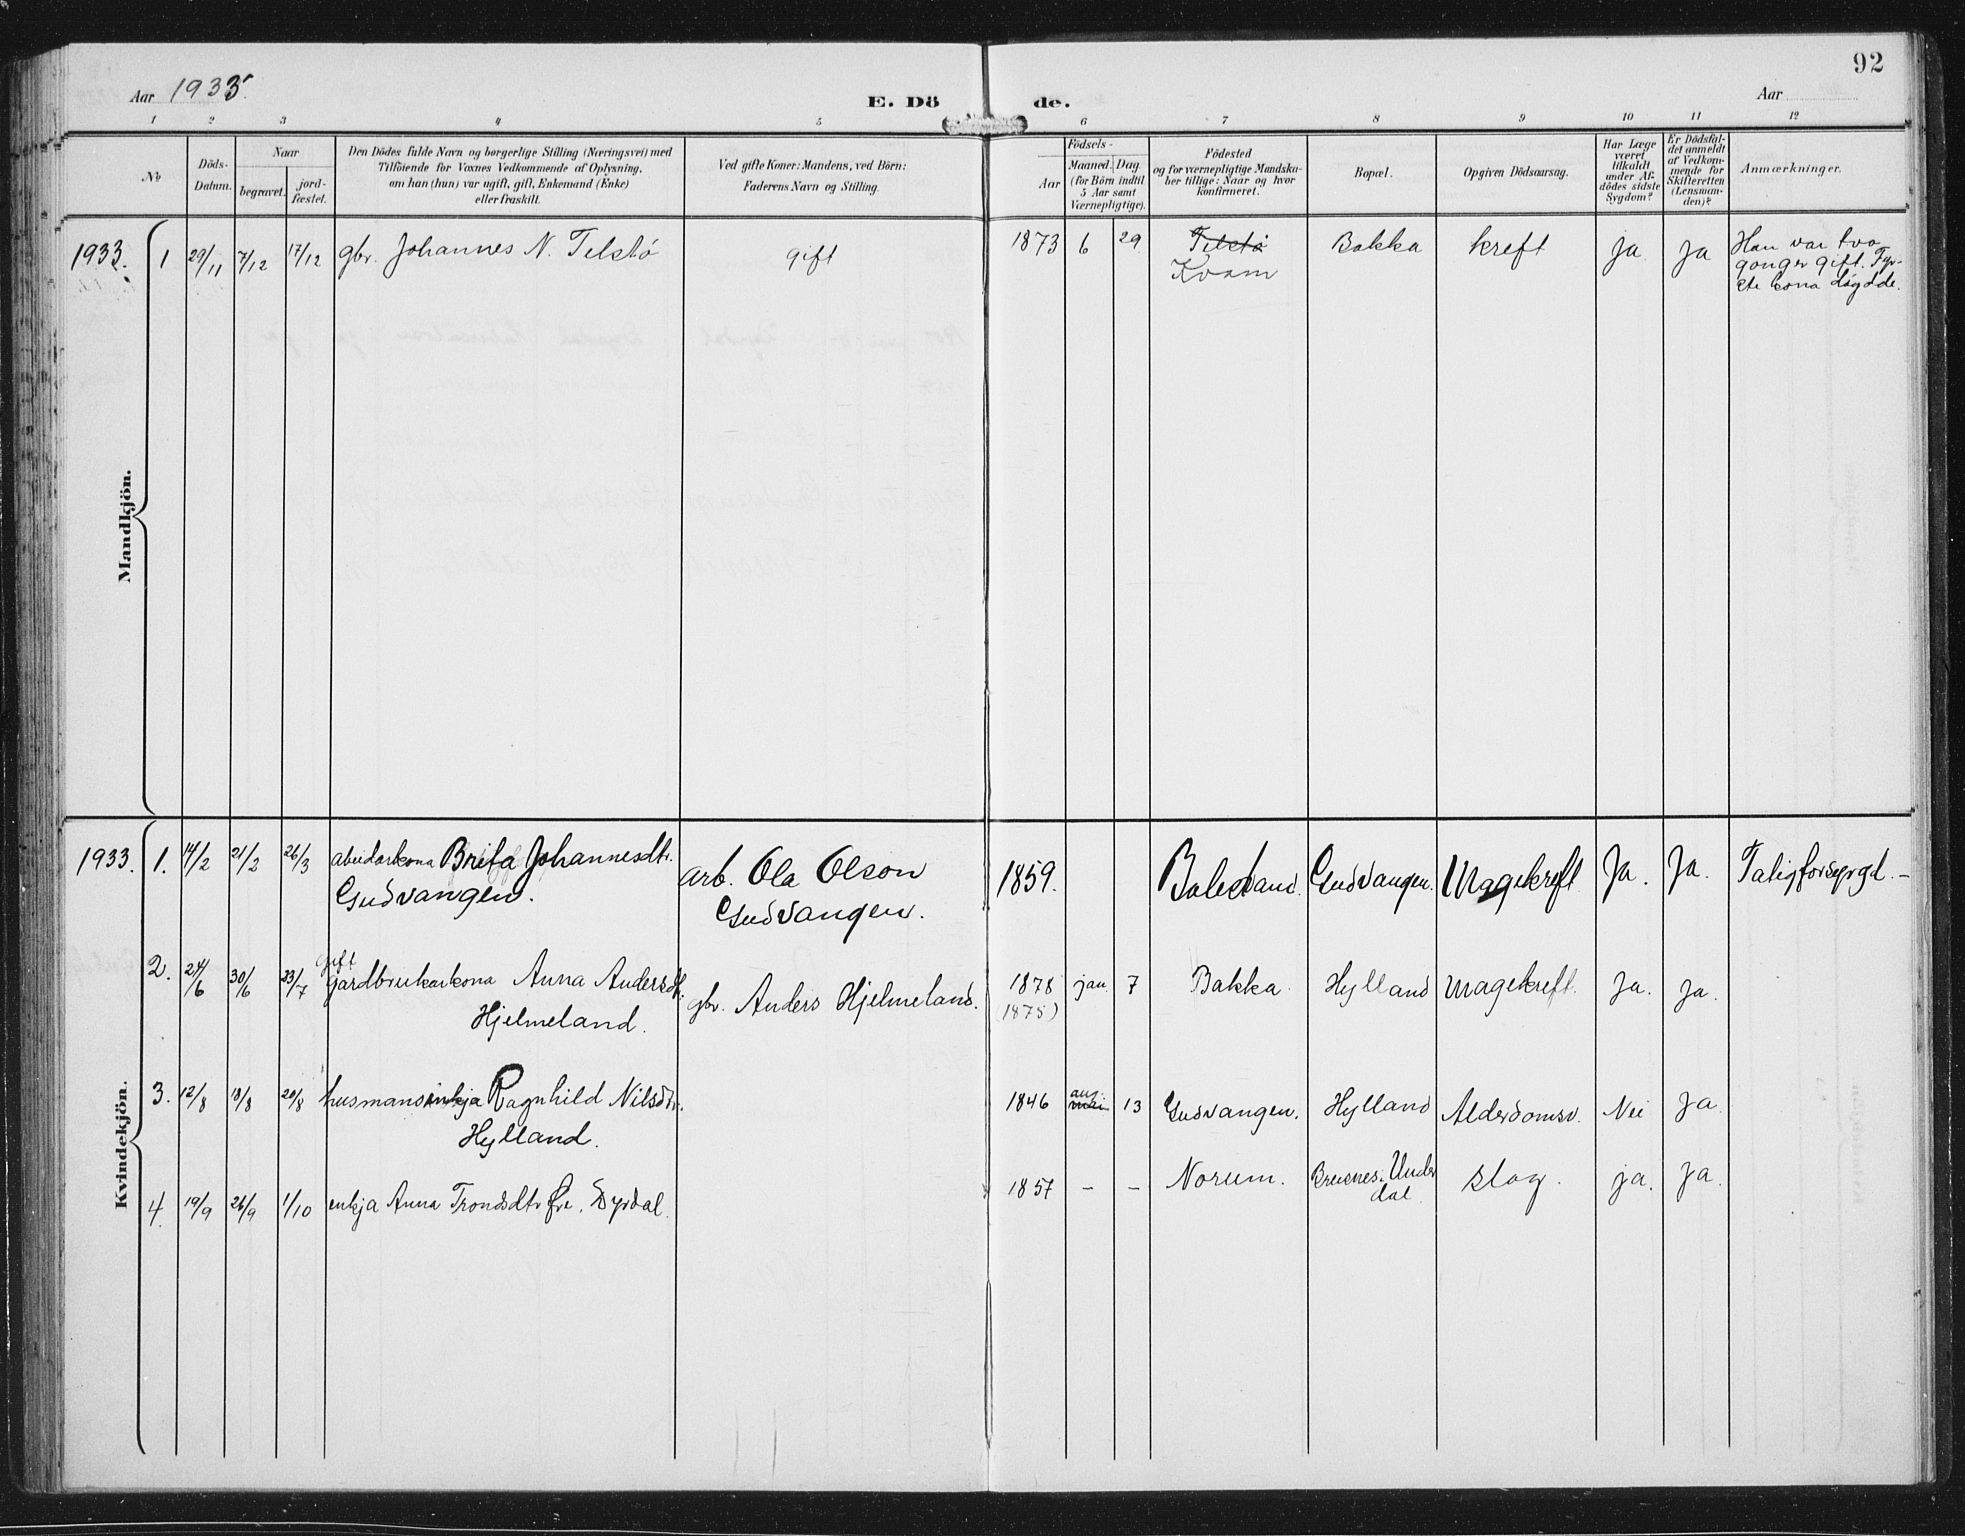 92
Aar 1933.
E. Dö de.
Aar
1 2 3 4 5 6 7 8 9 10 11 12
№
Döds-
Datum.
Naar
begravet.
jord-
fæstet.
Den Dödes fulde Navn og borgerlige Stilling (Næringsvei) med
Tilföiende for Voxnes Vedkommende af Oplysning,
om han (hun) var ugift, gift, Enkemand (Enke)
eller fraskilt.
Ved gifte Koner: Mandens, ved Börn:
Faderens Navn og Stilling.
Födsels-
Aar
Maaned. Dag
(for Börn indtil
5 Aar samt
Værnepligtige).
Födested
og for værnepligtige Mandska-
ber tillige: Naar og hvor
konfirmeret.
Bopæl.
Opgiven Dödsaarsag.
Har Læge
været
tilkaldt
under Af-
dödes sidste
Sygdom?
Er Dödsfal-
det anmeldt
af Vedkom-
mende for
Skifteretten
(Lensman-
den)?
Anmærkninger.
Mandkjön.
1933. 1 29/11 7/12 17/12 gbr. Johannes N. Telstø gift 1873 6 29 Telstø Bakka kreft ja ja Han var tvo
Kvam gonger gift. Fyr-
ste kona døydde.
Kvindekjön.
1933. 1. 14/2 21/2 26/3 abeidarkona Brita Johannesdtr. arb. Ola Olson 1859. Balestrand. Gudvangen. Magekreft Ja. Ja.
Gudvangen. Gudvangen.
2. 24/6 30/6 23/7 gift
gardbrukarkona Anna Andersdt. gbr. Anders Hjelmeland. 1878 jan. 7 Bakka. Hylland Magekreft. Ja. Ja.
Hjelmeland. (1875)
3. 12/8 18/8 20/8 husmansenkja Ragnhild Nilsdtr. 1846 aug. mai 13 Gudvangen. Hylland Alderdomsv. Nei Ja.
Hylland.
4. 19/9 26/9 1/10 enkja Anna Trondsdtr Dyrdal. 1857 - - Norum. Undr
dal. slag. ja. Ja.